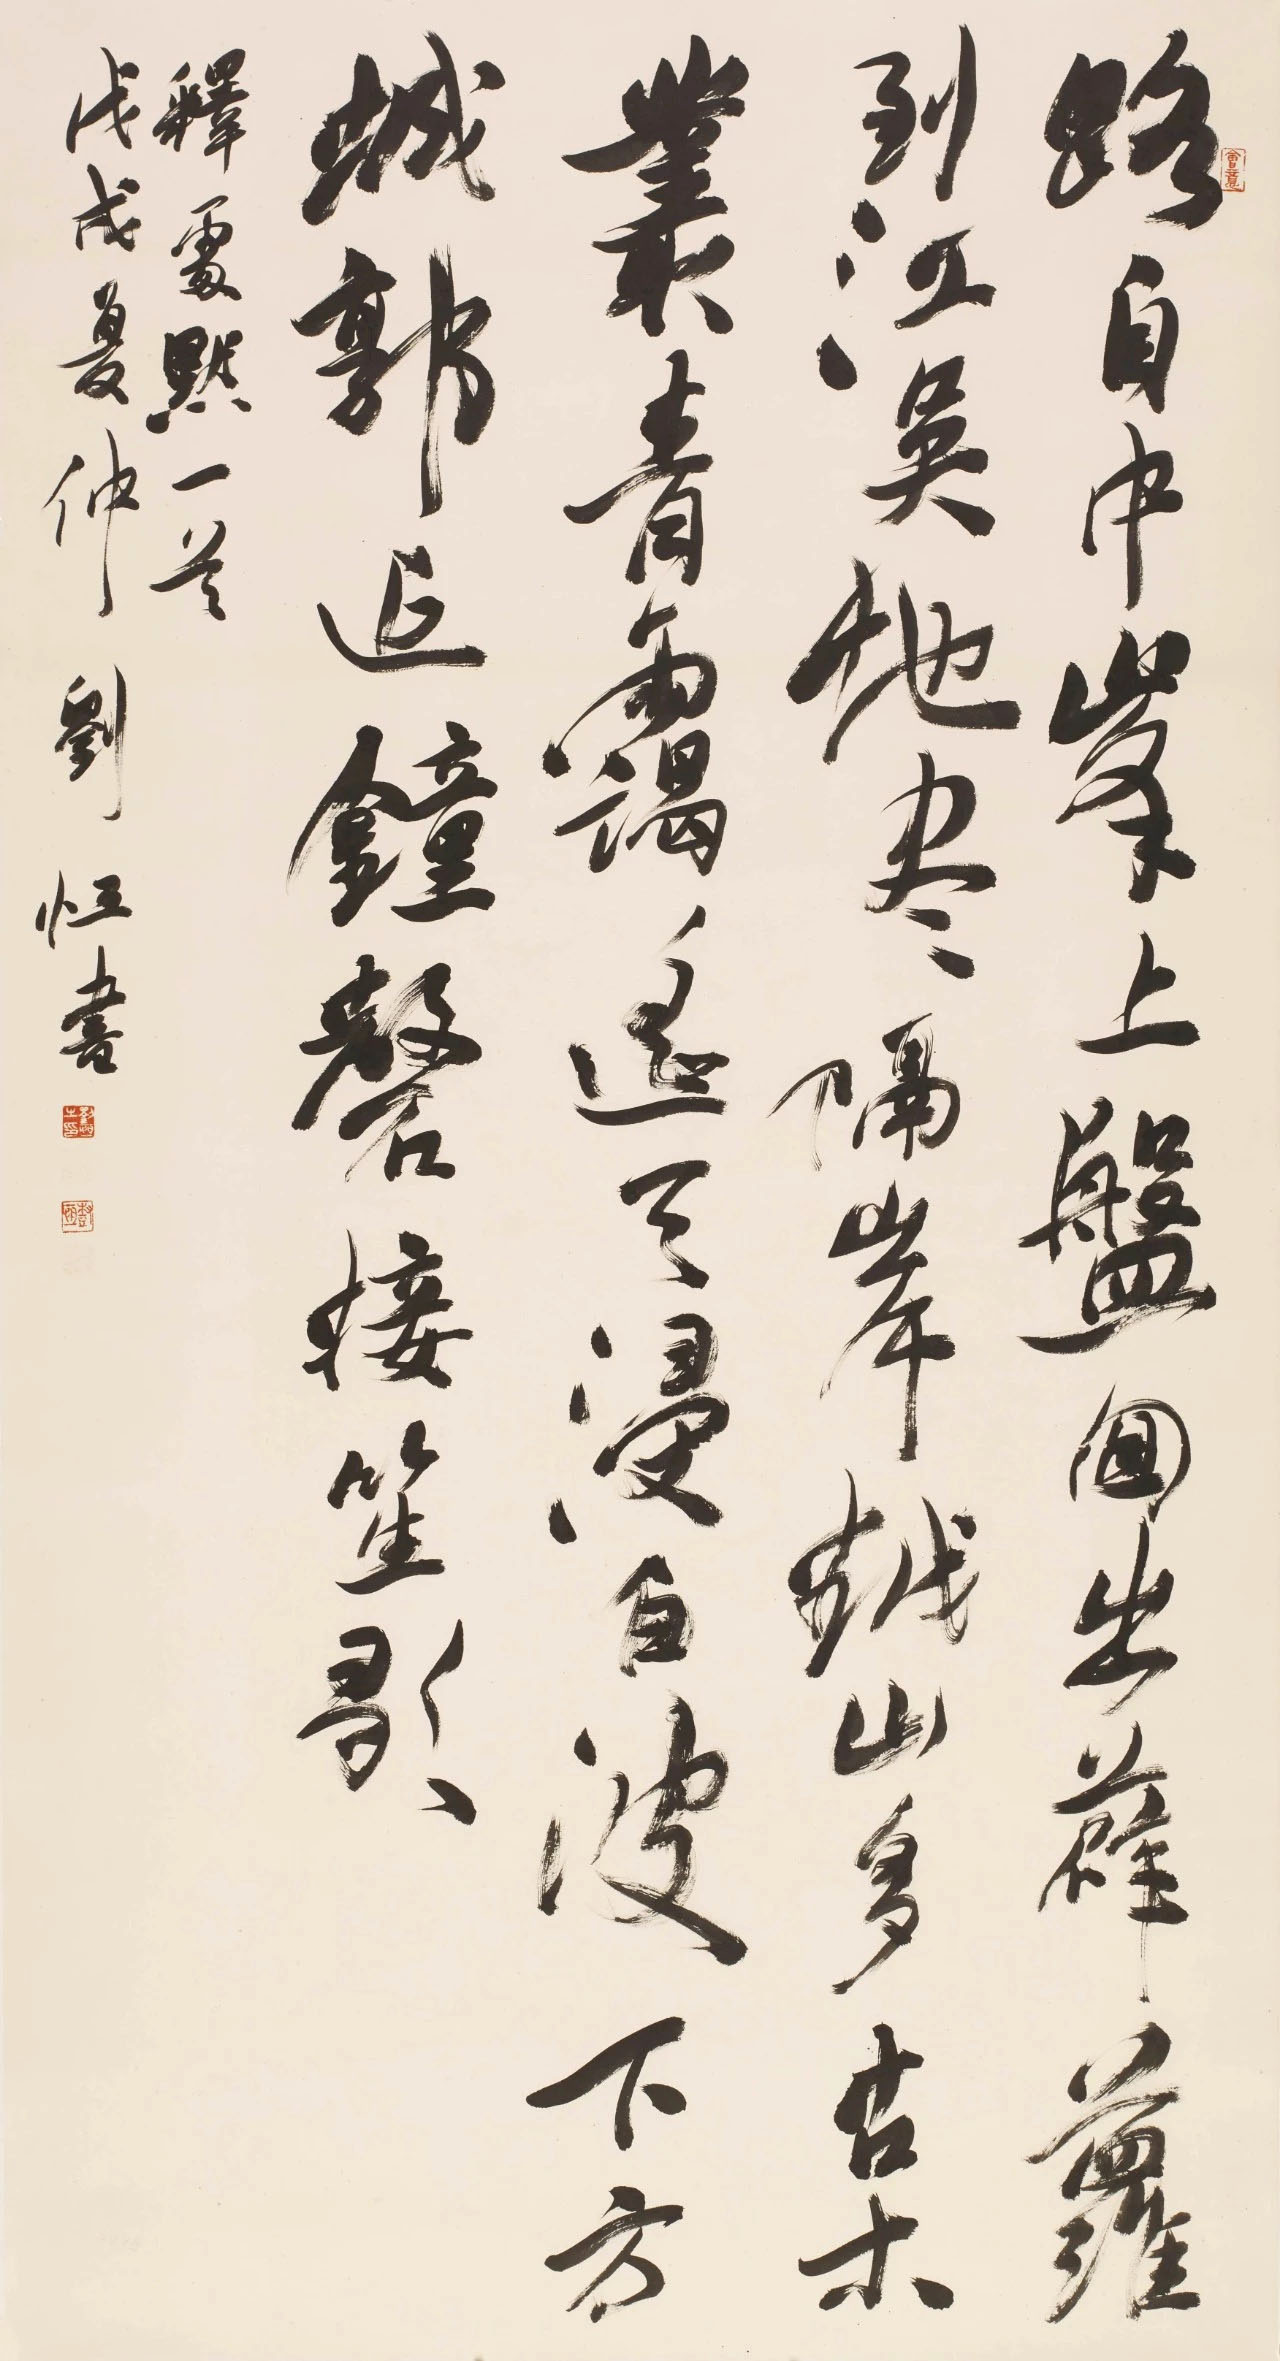 會意
路自中峯上盤囬出薜蘿
到江吳地尽隔岸越山多古木
叢青靄遙天浸白波下方
城郭近鐘磬接笙歌
釋處默一首
戊戌夏仲劉恒書